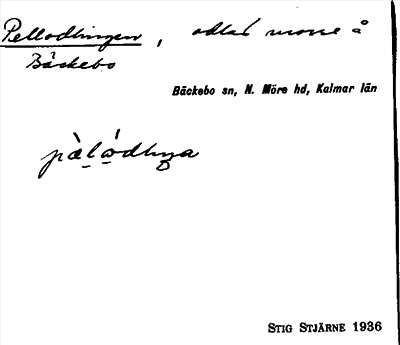 Pellodlingen, odlad mosse å
Bäckebo
Bäckebo sn, N. Möre hd, Kalmar län
STIG STJÄRNE 1936